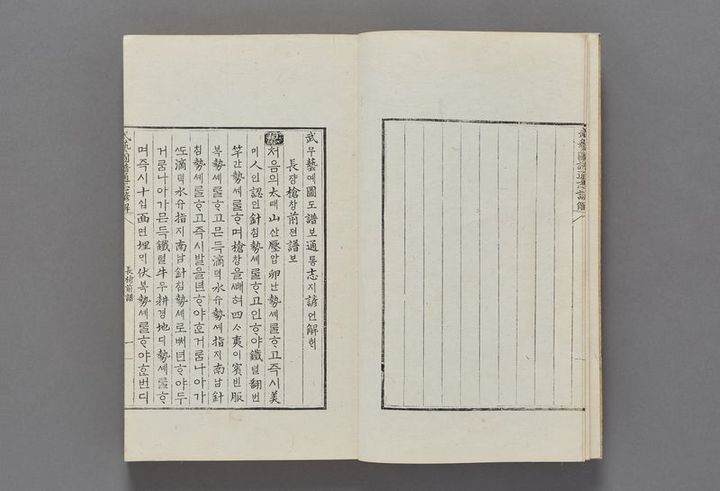 武藝圖譜通志諺解
武무藝예圖도譜보通통志지諺언解ᄒᆡ
長쟝槍창前젼譜보
처음의太태山산壓압卵난勢셰를ᄒᆞ고즉시美
미人인認인針침勢셰를ᄒᆞ고인ᄒᆞ야鐵텰翻번
竿간勢셰를ᄒᆞ며槍창을ᄲᅢ혀四ᄉᆞ夷이賓빈服
복勢셰를ᄒᆞ고믄득滴뎍水슈勢셰指지南남針
침勢셰를ᄒᆞ고즉시발을년ᄒᆞ야ᄒᆞᆫ거룸나아가
ᄯᅩ滴뎍水슈指지南남針침勢셰로ᄲᅢ텨년ᄒᆞ야두
거룸나아가믄득鐵텰牛우耕경地디勢셰를ᄒᆞ
며즉시十십面면埋ᄆᆡ伏복勢셰를ᄒᆞ야ᄒᆞᆫ번디
武藝圖譜通志諺解
長槍前譜
一